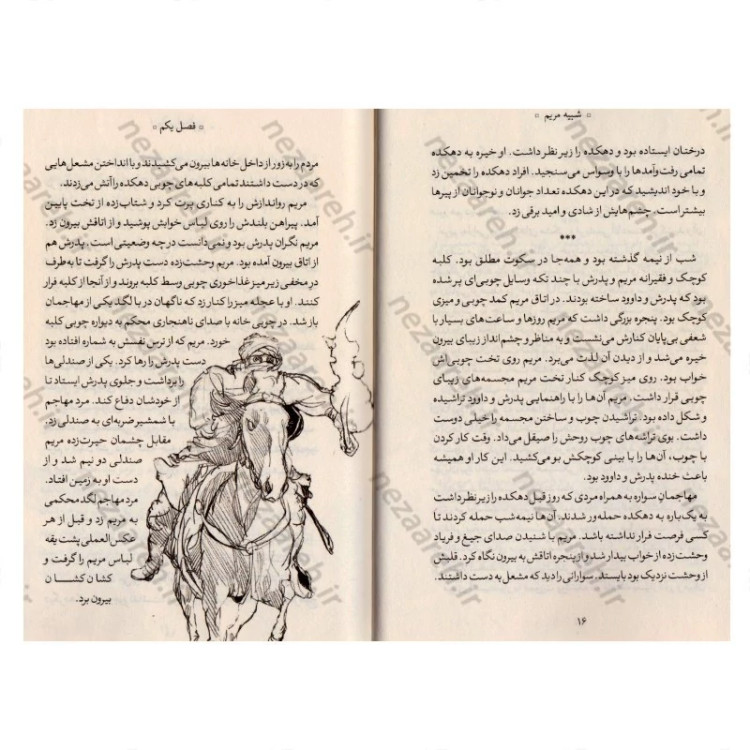 * شبیه مریم *
درختان ایستاده بود و دهکده را زیر نظر داشت. او خیره به دهکده
تمامی رفت‌وآمدها را با وسواس می‌سنجید. افراد دهکده را تخمین زد
و با خود اندیشید که در این دهکده تعداد جوانان و نوجوانان از پیرها
بیشتر است، چشم‌هایش از شادی و امید برقی زد.
***
شب از نیمه گذشته بود و همه‌جا در سکوت مطلق بود. کلبه
کوچک و فقیرانه مریم و پدرش با چند تکه وسایل چوبی‌ای پر شده
بود که پدرش و داوود ساخته بودند. در اتاق مریم کمد چوبی و میزی
کوچک بود. پنجره بزرگی داشت که مریم روزها و ساعت‌های بسیار با
شعفی بی‌پایان کنارش می‌نشست و به مناظر و چشم‌انداز زیبای بیرون
خیره می‌شد و از دیدن آن لذت می‌برد. مریم روی تخت چوبی‌اش
خواب بود. روی میز کوچک کنار تخت مریم مجسمه‌های زیبای
چوبی قرار داشت. مریم آن‌ها را با راهنمایی پدرش و داوود تراشیده
و شکل داده بود. تراشیدن چوب و ساختن مجسمه را خیلی دوست
داشت. بوی تراشه‌های چوب روحش را صیقل می‌داد. وقت کار کردن
با چوب، آن‌ها را با بینی کوچکش بو می‌کشید. این کار او همیشه
باعث خنده پدرش و داوود بود.
مهاجمان سواره به همراه مردی که روز قبل دهکده را زیر نظر داشت
به یک‌باره به دهکده حمله‌ور شدند. آن‌ها نیمه‌شب حمله کردند تا
کسی فرصت فرار نداشته باشد. مریم با شنیدن صدای جیغ و فریاد
وحشت‌زده از خواب بیدار شد و از پنجره اتاقش به بیرون نگاه کرد. قلبش
از وحشت نزدیک بود بایستد. سوارانی را دید که مشعل به دست داشتند.
۱۶
* فصل یکم *
مردم را به زور از داخل خانه‌ها بیرون می‌کشیدند و با انداختن مشعل‌هایی
که در دست داشتند تمامی کلبه‌های چوبی دهکده را آتش می‌زدند.
مریم رواندازش را به کناری پرت کرد و شتاب‌زده از تخت پایین
آمد. پیراهن بلندش را روی لباس خوابش پوشید و از اتاقش بیرون زد.
مریم نگران پدرش بود و نمی‌دانست در چه وضعیتی است. پدرش هم
از اتاق بیرون آمده بود. مریم وحشت‌زده دست پدرش را گرفت تا به‌طرف
در مخفی زیر میز غذاخوری چوبی وسط کلبه بروند و از آنجا از کلبه فرار
کنند. او با عجله میز را کنار زد که ناگهان در با لگد یکی از مهاجمان
باز شد. در چوبی خانه با صدای ناهنجاری محکم به دیواره چوبی کلبه
خورد. مریم که از ترس نفسش به شماره افتاده بود
دست پدرش را رها کرد. یکی از صندلی‌ها
را برداشت و جلوی پدرش ایستاد تا
از خودشان دفاع کند. مرد مهاجم
با شمشیر ضربه‌ای به صندلی زد.
مقابل چشمان حیرت‌زده مریم
صندلی دو نیم شد و از
دست او به زمین افتاد.
مرد مهاجم لگد محکمی
به مریم زد و قبل از هر
عکس‌العملی پشت یقه
لباس مریم را گرفت و
کشان کشان
بیرون برد.
nezaareh.ir